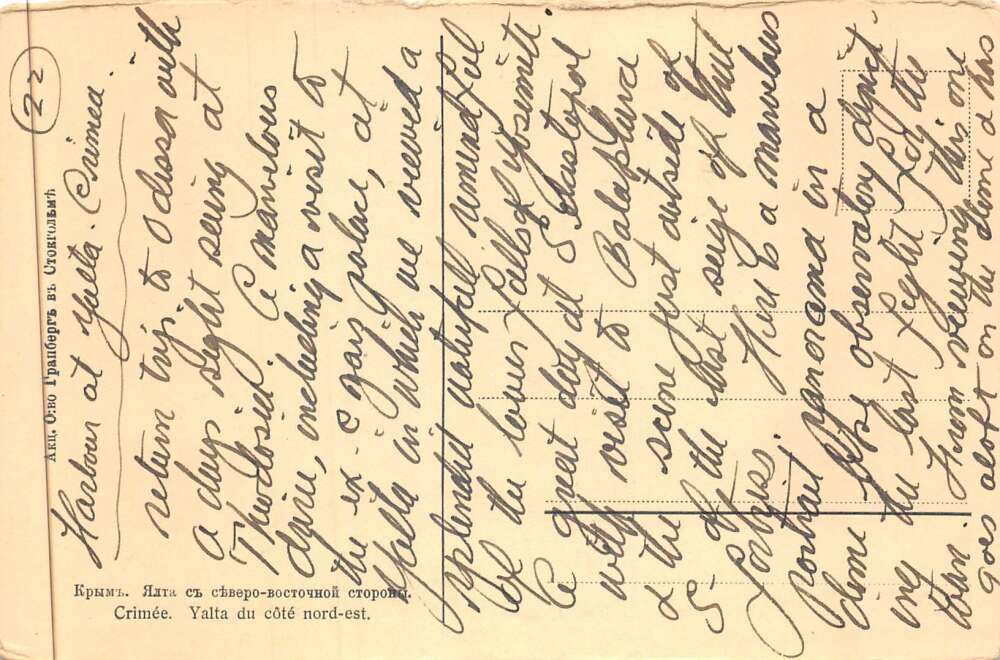 22
Harbour at Yalta. Crimea.
return trip to odessa with
a days sight seeing at
Theodosia. A marvelous
drive, including a visit to
the ex-Czars palace, at
Yalta in which we viewed a
splendid waterfall remindful
of the lower falls of yosemite
A great day at Sebastopol
with visit to Balaklava
& the scene just outside of
5 of the last seige of that
Forbijs Here is a marvelous
portrait panorama in a
dome like observatory depict
ing the last fight for the
town. From viewing this one
goes aloft on the dome & has
Акц. О:во Гранбергъ въ Стокгольмѣ
Крымъ. Ялта съ сѣверо-восточной стороны.
Crimée. Yalta du côté nord-est.